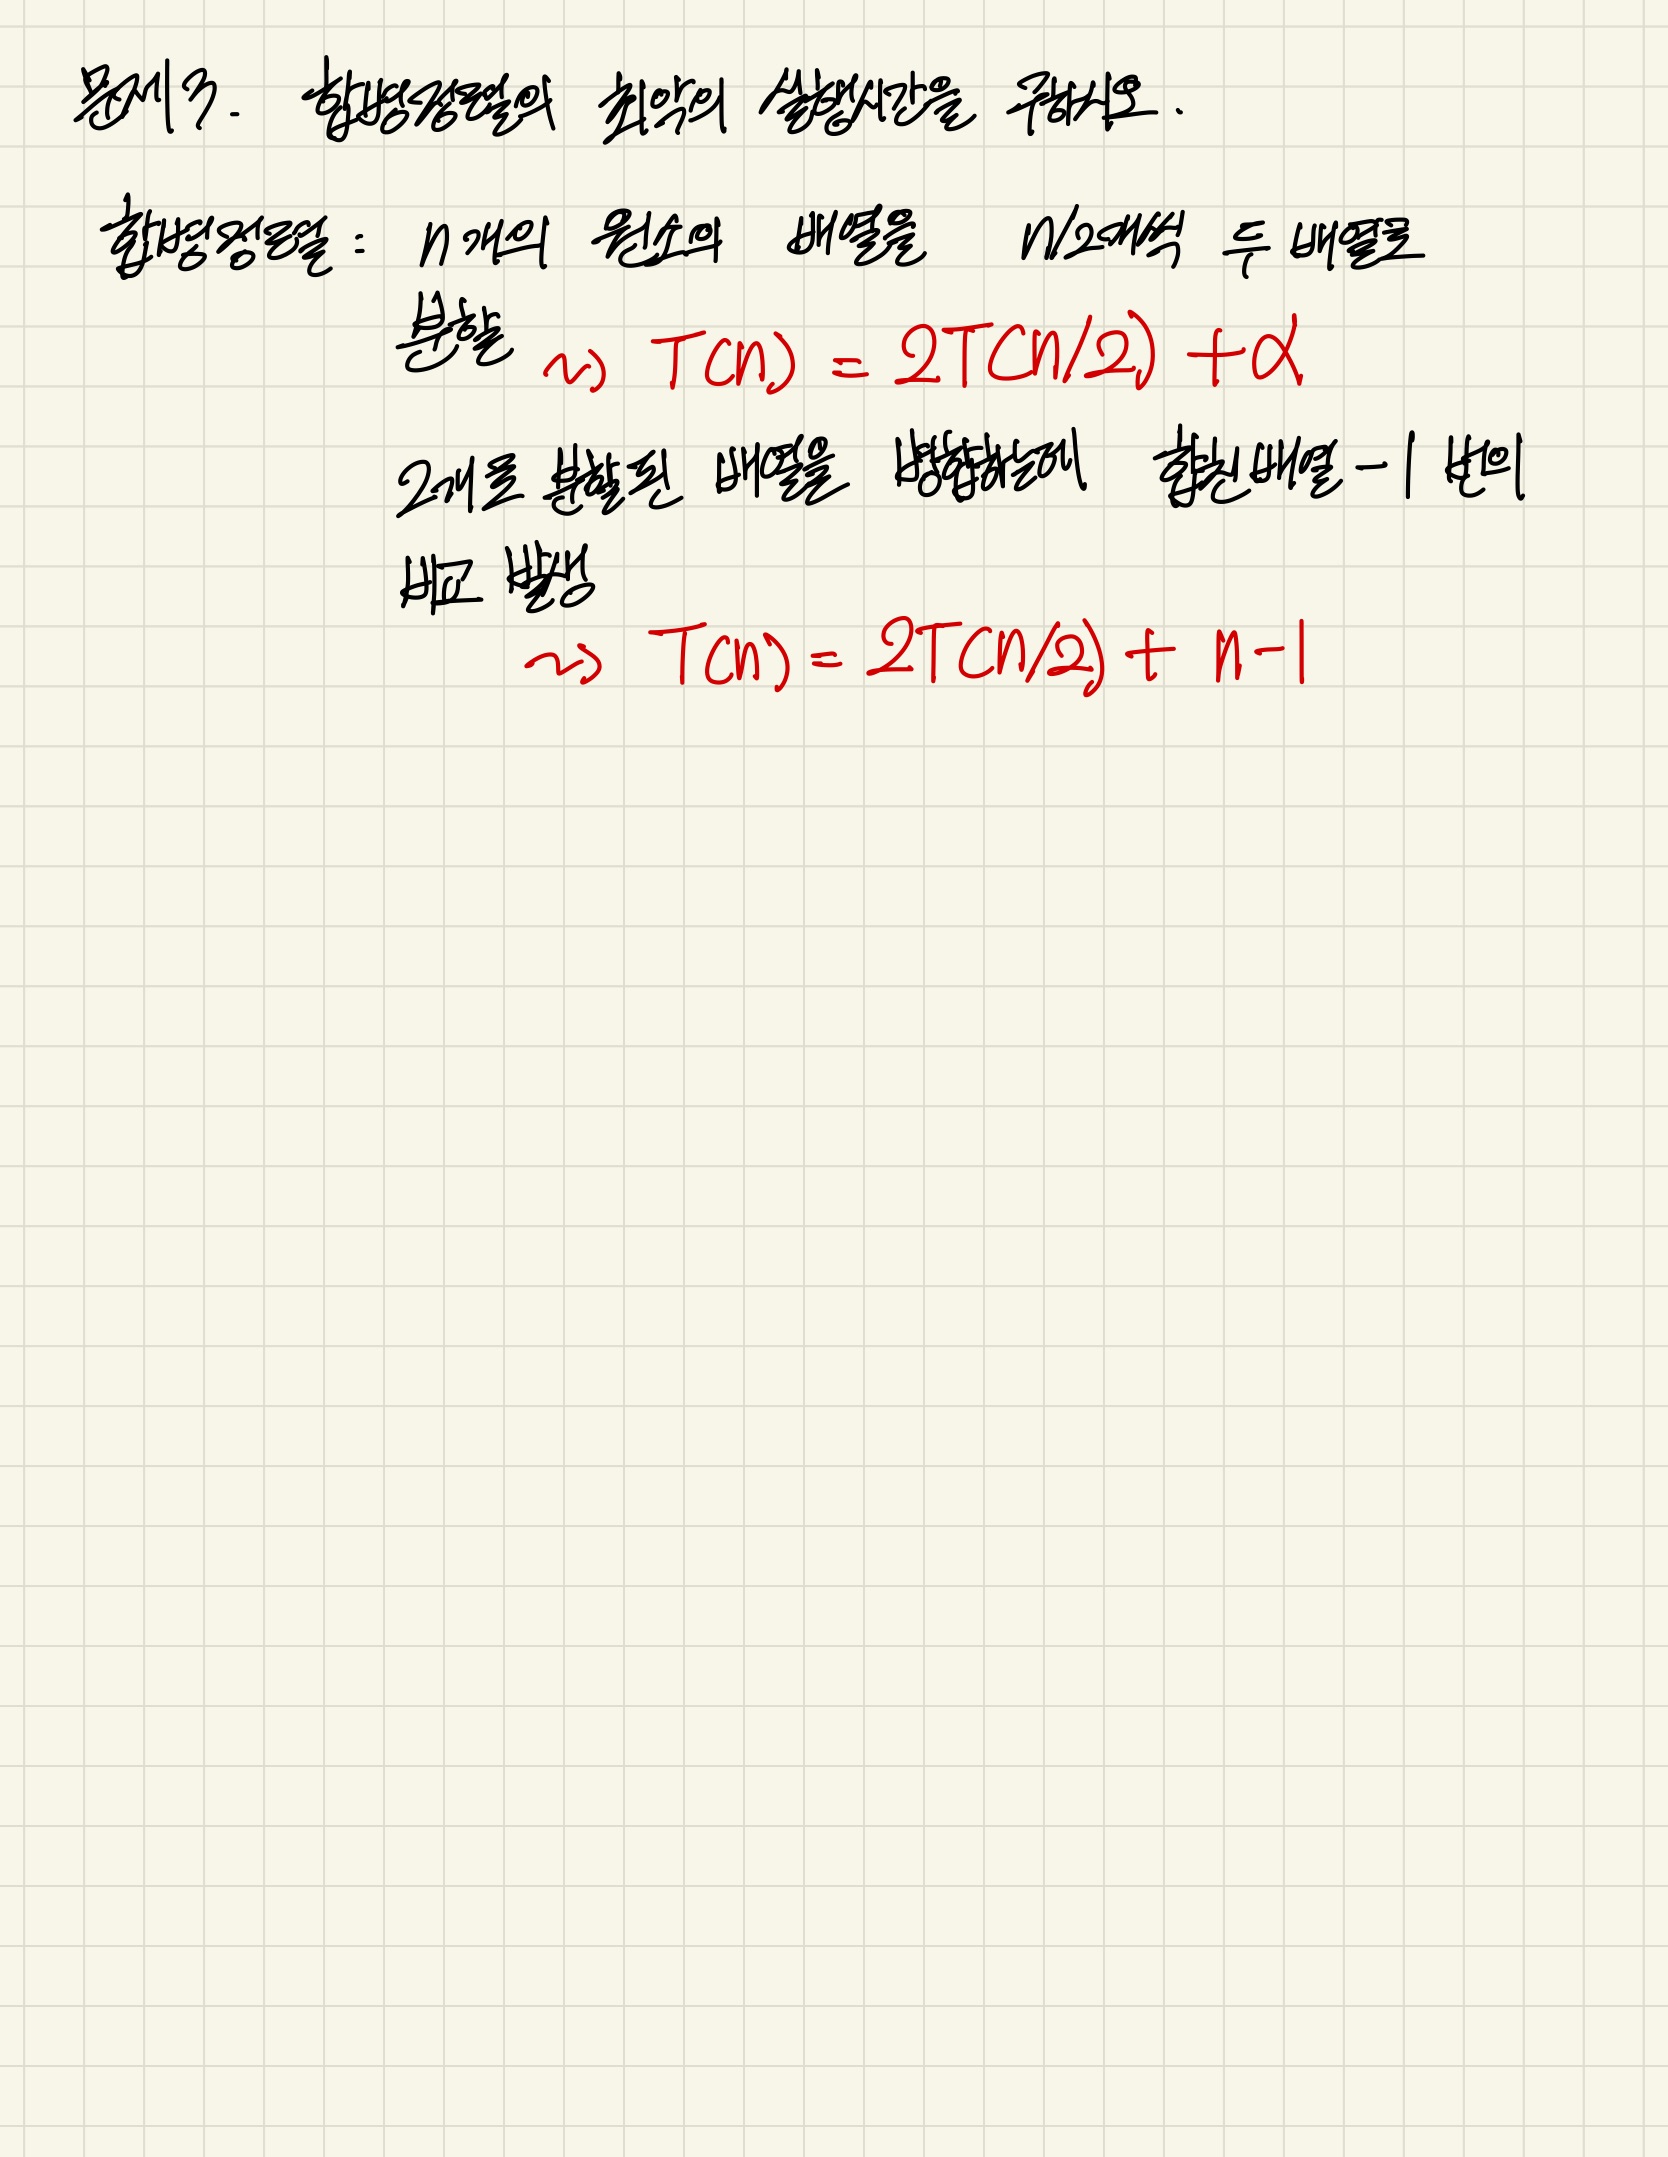 문제 3. 합병정렬의 최악의 실행시간을 구하시오.
합병정렬 : n개의 원소의 배열을 n/2개씩 두 배열로
분할
~> T(n) = 2T(n/2) + α
2개로 분할된 배열을 병합하는데 합친배열 - 1 번의
비교 발생
~> T(n) = 2T(n/2) + n-1